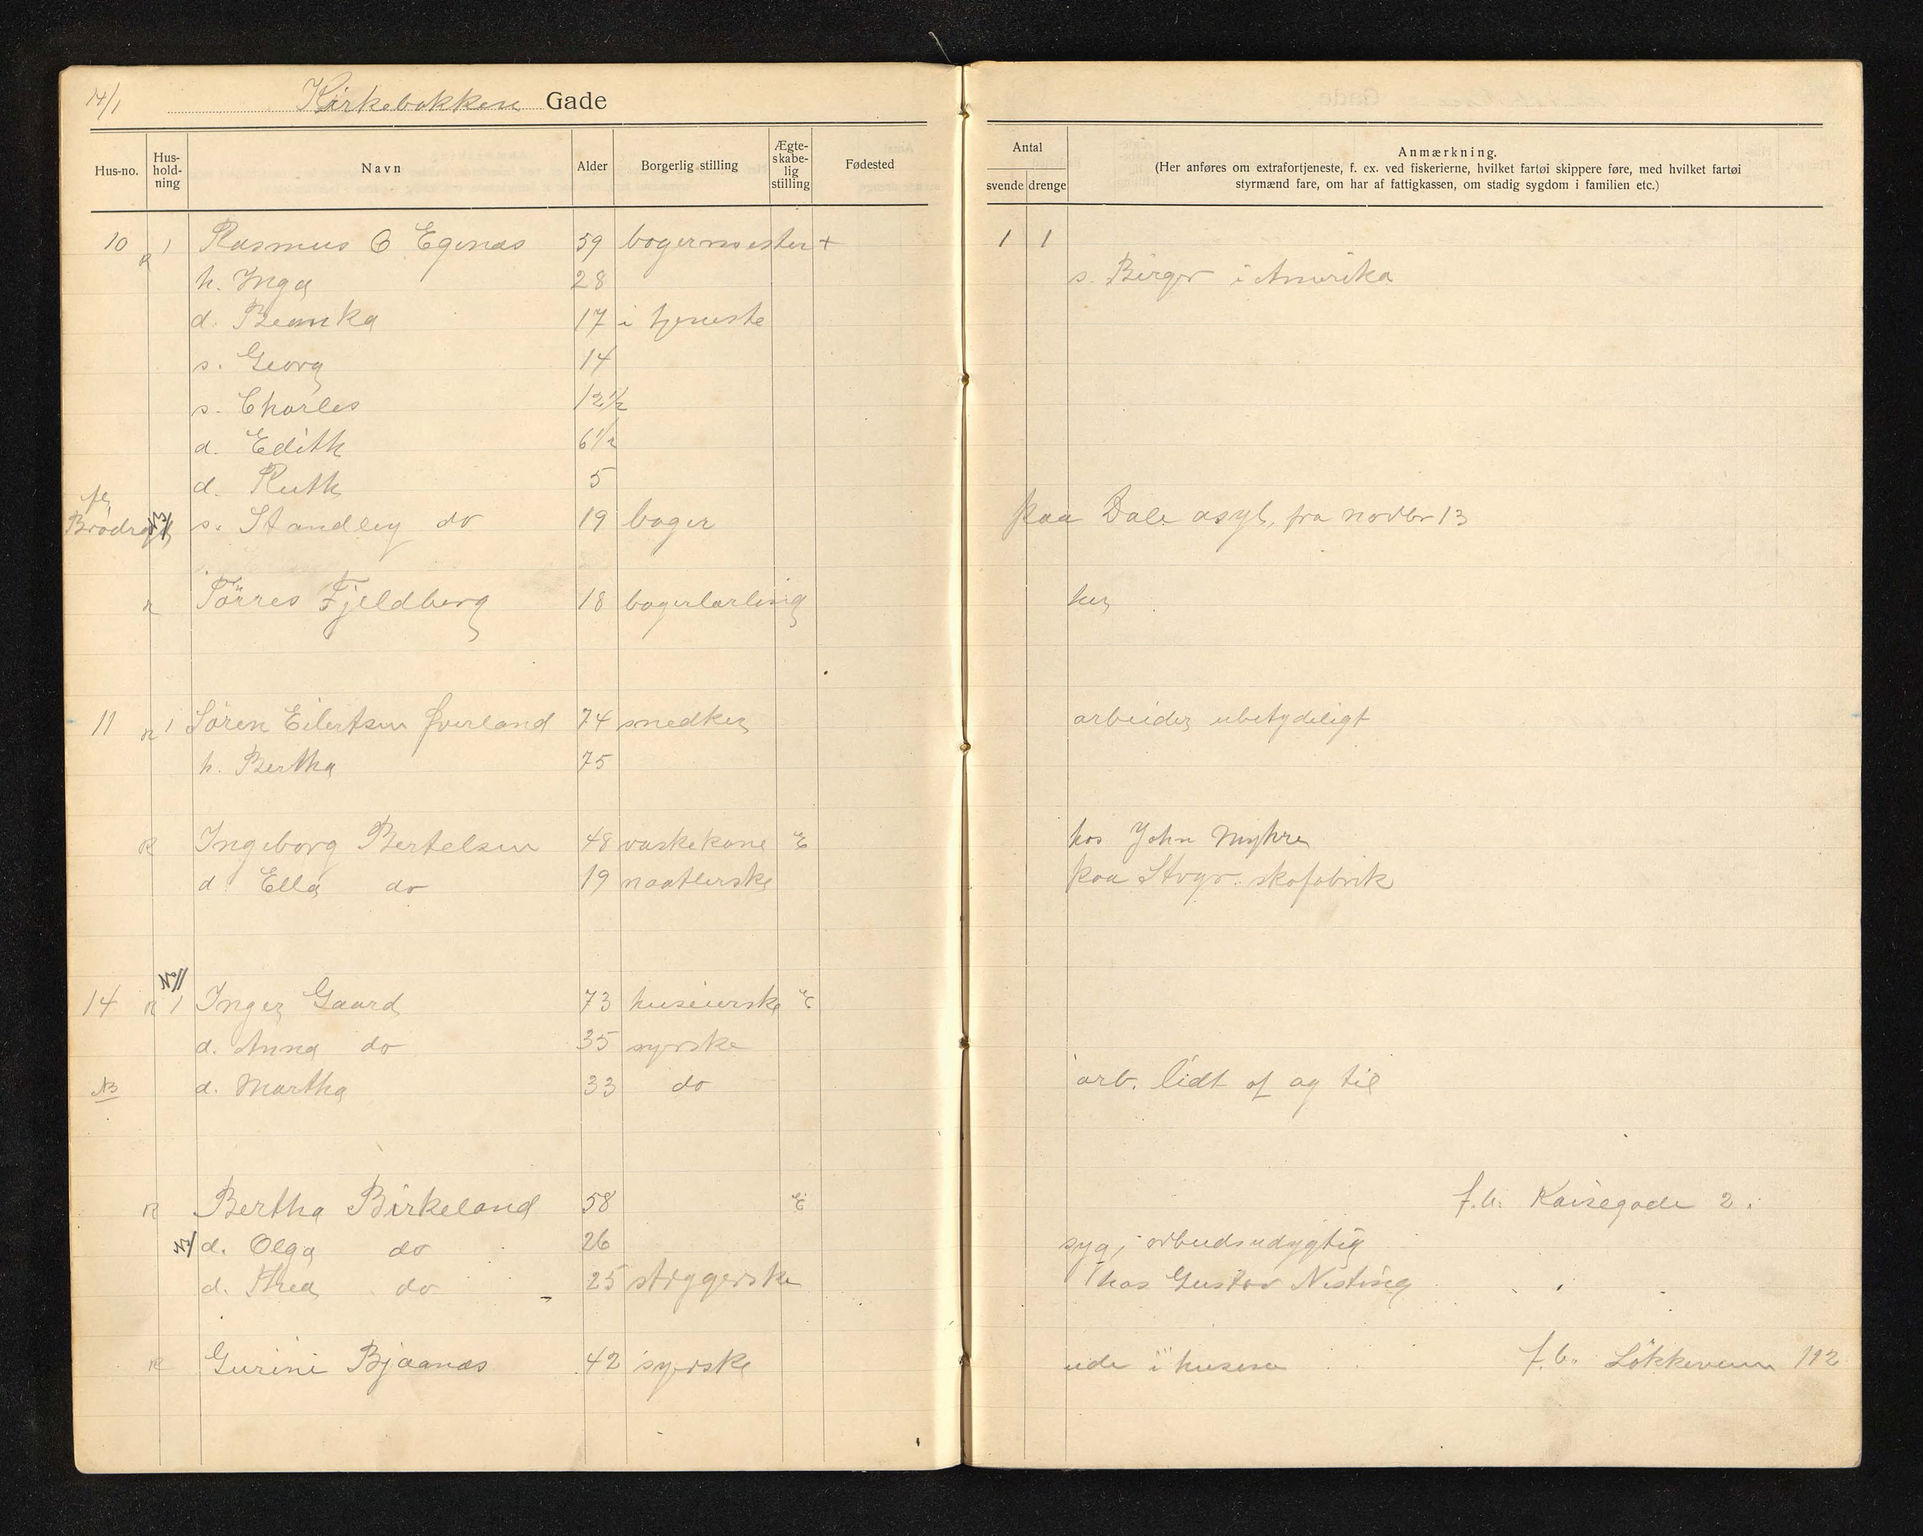 14/1 Kirkebakken Gade
Hus-no. Hus-hold-ning Navn Alder Borgerlig stilling Ægte-skabe-lig stilling Fødested
Antal svende drenge Anmærkning.
(Her anføres om extrafortjeneste, f. ex. ved fiskerierne, hvilket fartøi skippere føre, med hvilket fartøi
styrmænd fare, om har af fattigkassen, om stadig sygdom i familien etc.)
10 R 1 Rasmus O Egenæs 59 bagermester + 1 1
h. Inga 28 s. Birger i Amerika
d. Beanka 17 i tjeneste
s. Georg 14
s. Charles 12½
d. Edith 6½
d. Ruth 5
s. Standley do 19 bager paa Dale asyl, fra novbr 13
R Törres Fjeldberg 18 bagerlærling her
11 R 1 Sören Eilertsen Øverland 74 snedker arbeider ubetydeligt
h. Bertha 75
R Ingeborg Bertelsen 48 vaskekone E hos John Myhre
d. Ella do 19 naatlerske paa Stvgr. skofabrik
14 R 1 Inger Gaard 73 huseierske E
d. Anna do 35 syerske
NB d. Martha 33 do arb. lidt af og til
R Bertha Birkeland 58 E f.b. Kaisegade 2.
d. Olga do 26 syg, arbeidsudygtig
d. Thea do 25 strygerske hos Gustav Nisting
R Gurine Bjaanæs 42 syerske ude i husene f.b. Lökkeveien 112